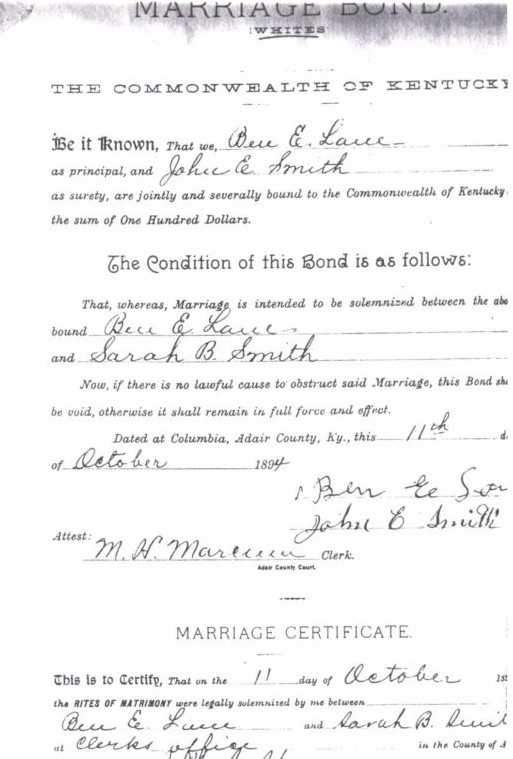 MARRIAGE BOND.
WHITES
THE COMMONWEALTH OF KENTUCKY
Be it Known, That we, Ben E. Lane
as principal, and John E Smith
as surety, are jointly and severally bound to the Commonwealth of Kentucky
the sum of One Hundred Dollars.
The Condition of this Bond is as follows:
That, whereas, Marriage is intended to be solemnized between the abo
bound Ben E. Lane
and Sarah B. Smith
Now, if there is no lawful cause to obstruct said Marriage, this Bond sha
be void, otherwise it shall remain in full force and effect.
Dated at Columbia, Adair County, Ky., this 11th d
of October 1894
Ben E
John E Smith
Attest:
M. H. Marcum Clerk.
Adair County Court.
MARRIAGE CERTIFICATE.
This is to Certify, That on the 11 day of October 18
the RITES OF MATRIMONY were legally solemnized by me between
Ben E. Lane and Sarah B. Smit
at Clerks office in the County of A